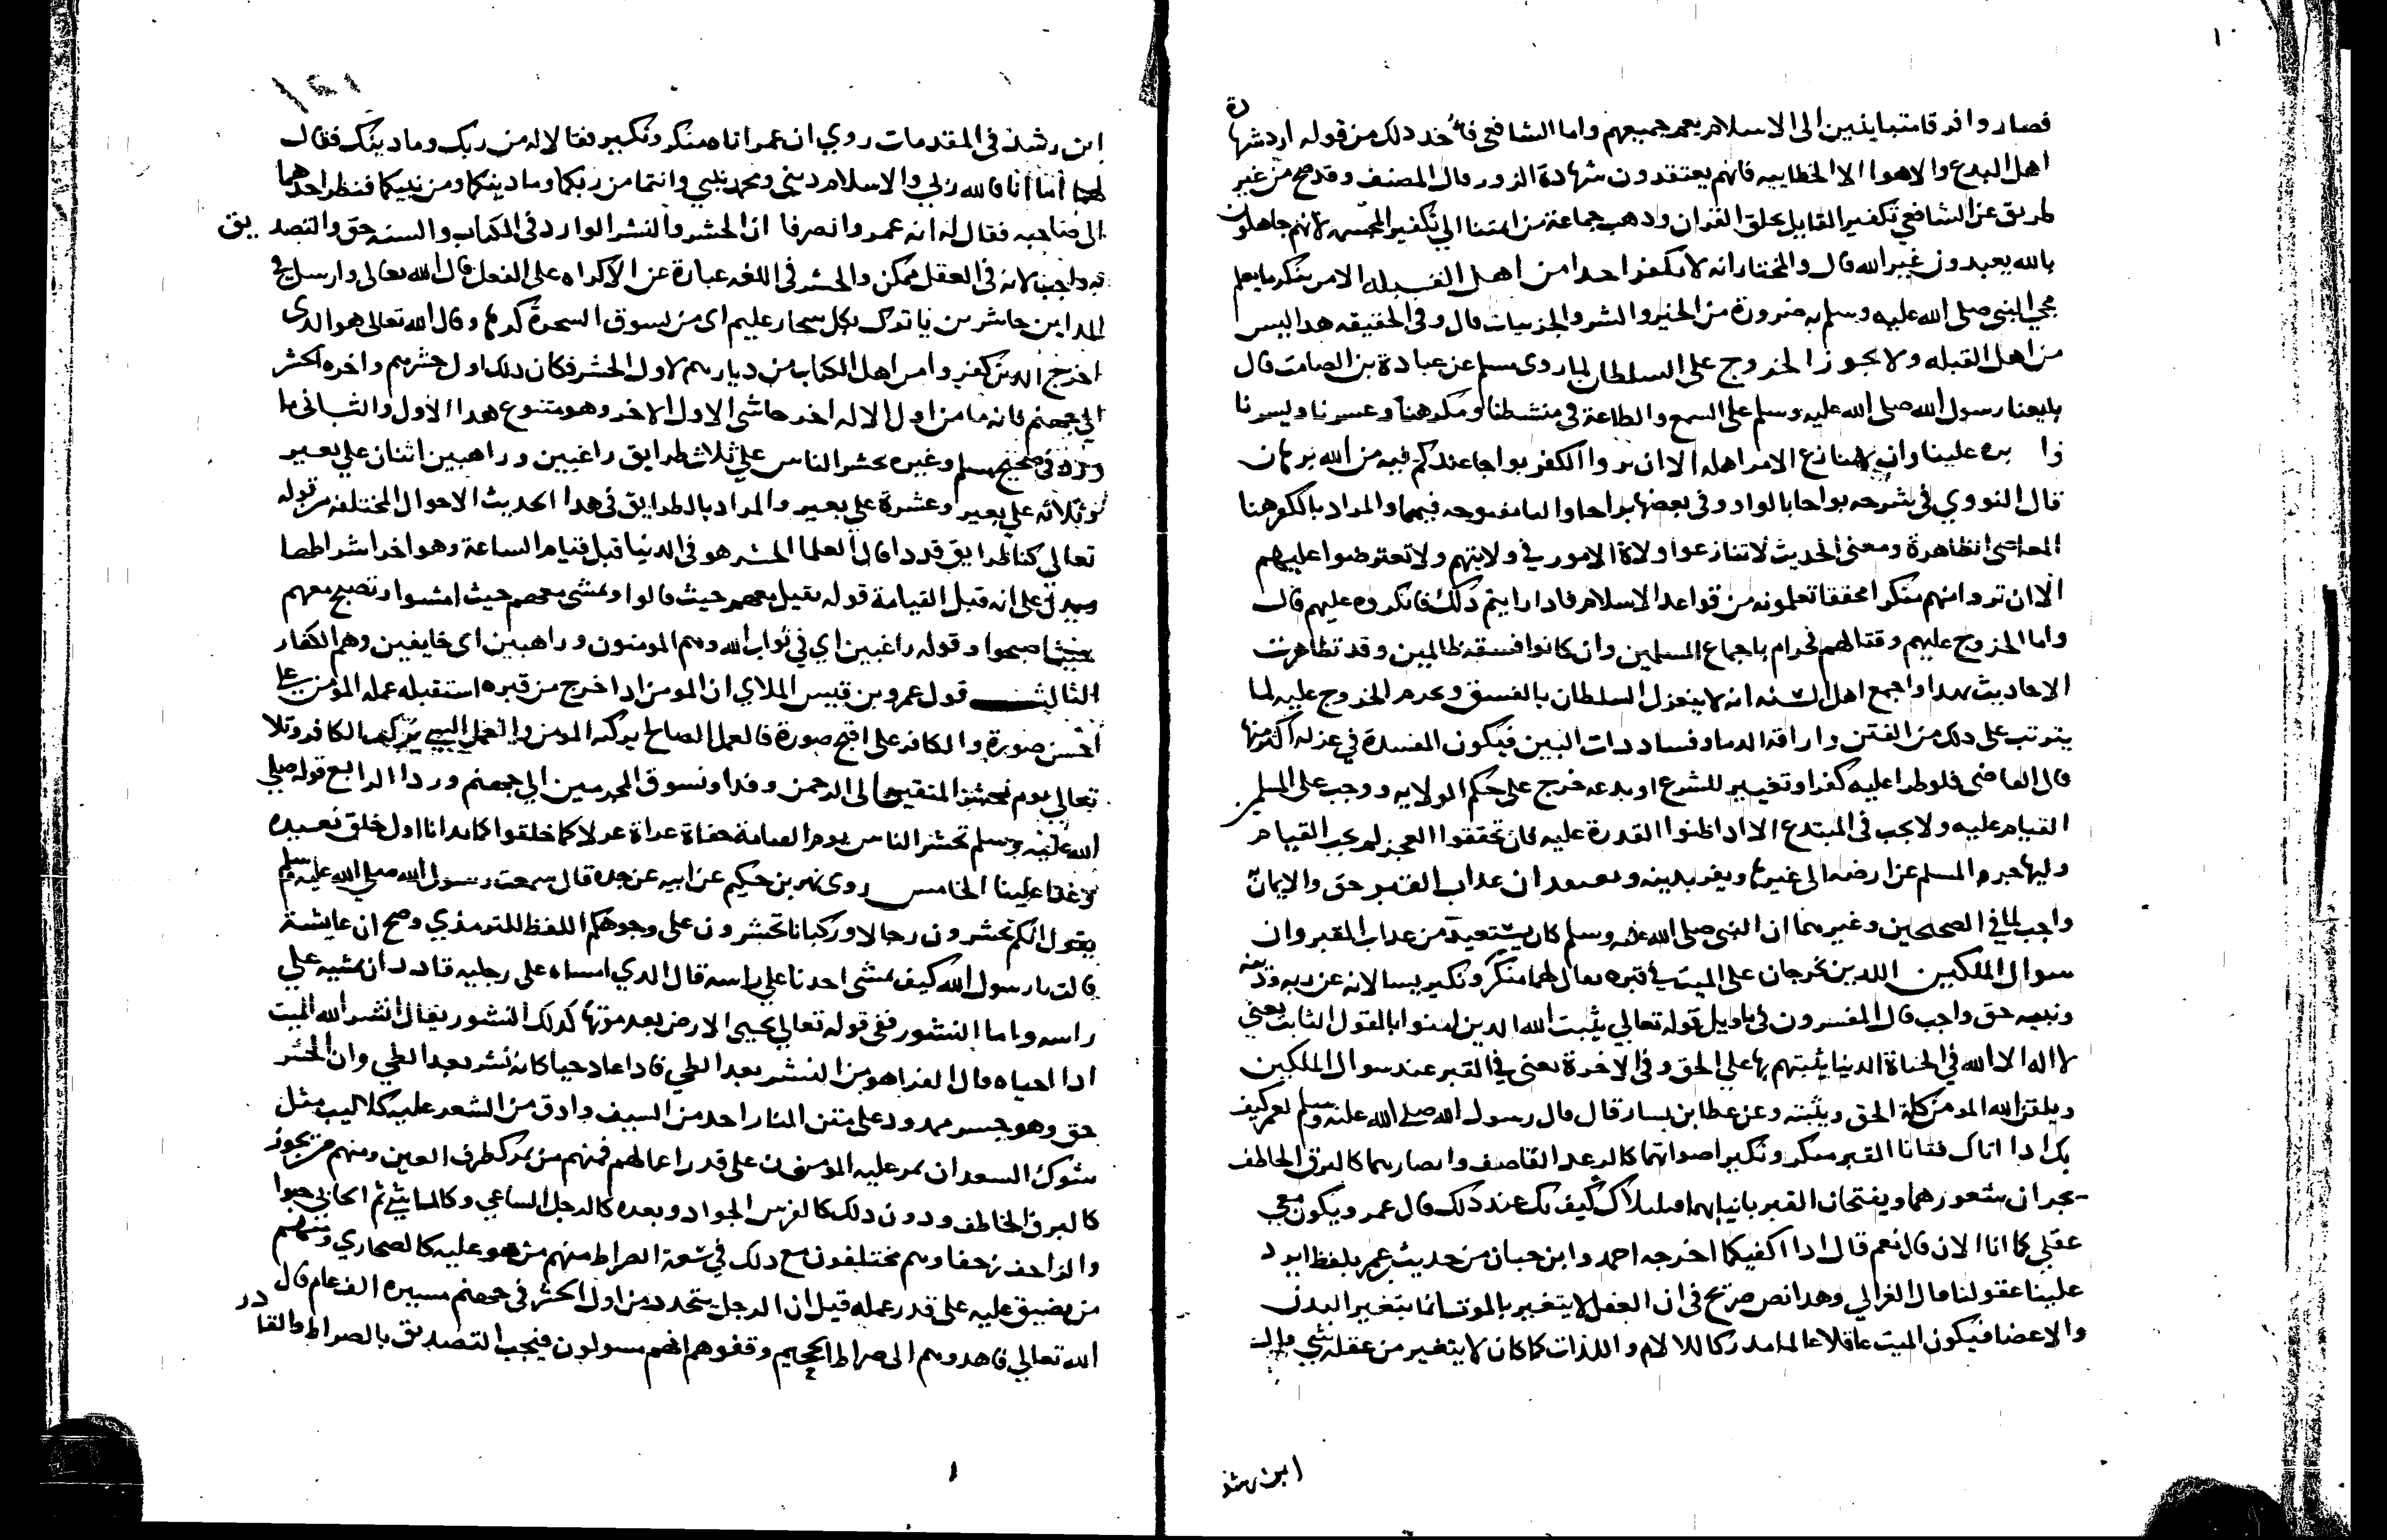 فصاروا فرقا متباينين الى الاسلام يعم جميعهم واما الشافعي فأخد دلك من قوله ارد شهادة
اهل البدع والاهوا الا الخطابيه فانهم يعتقدون شهادة الزور قال المصنف وقد صح من غير
طريق عن الشافعي تكفير القايل بخلق القران ودهب جماعة من ايمتنا الي تكفير المجسمه لانهم جاهلون
بالله يعبدون غير الله قال والمختار انه لا نكفر احدا من اهل القبله الا من ينكر ما يعلم
مجي النبي صلى الله عليه وسلم به ضرورة من الخير والشر والجزييات قال وفي الحقيقه هدا ليس
من اهل القبله ولا يجوز الخروج على السلطان لما روى مسلم عن عبادة بن الصامت قال
بايعنا رسول الله صلى الله عليه وسلم على السمع والطاعة في منشطنا ومكرهنا وعسرنا ويسرنا
وا ثره علينا وان لا ننازع الامر اهله الا ان تروا الكفر بواحا عندكم فيه من الله برهان
قال النووي في شرحه بواحا بالواو وفي بعضها براحا والبا مفتوحه فيهما والمراد بالكفر هنا
المعاصي الظاهرة ومعنى الحديث لا تنازعوا ولاة الامور في ولايتهم ولا تعترضوا عليهم
الا ان تروا منهم منكرا محققا تعلمونه من قواعد الاسلام فادا رايتم دلك فانكروه عليهم قال
واما الخروج عليهم وقتالهم فحرام باجماع المسلمين وان كانوا فسقه ظالمين وقد تظاهرت
الاحاديث بهدا واجمع اهل السنه انه لا ينعزل السلطان بالفسق ويحرم الخروج عليه لما
يترتب على دلك من الفتن واراقه الدما وفساد دات البين فيكون المفسدة في عزله اكثر منها
قال القاضى فلو طرا عليه كفر او تغيير للشرع او بدعه خرج على حكم الولايه ووجب على المسلمين
القيام عليه ولا يجب في المبتدع الا ادا ظنوا القدرة عليه فان تحققوا العجز لم يجب القيام
وليهاجر المسلم عن ارضه الى غيرها ويفر بدينه ونعتقد ان عداب القبر حق والايمان به
واجب لما في الصحيحين وغيرهما ان النبي صلى الله عليه وسلم كان يستعيد من عداب القبر وان
سوال الملكين اللدين يخرجان على الميت في قبره يقال لهما منكر ونكير يسالانه عن ربه ودينه
ونبيه حق واجب قال المفسرون في تاويل قوله تعالي يثبت الله الدين امنوا بالقول الثابت يعني
لا اله الا الله في الحياة الدنيا يثبتهم بها علي الحق وفى الاخرة يعنى في القبر عند سوال الملكين
ويلقن الله المومن كلمة الحق ويثبته وعن عطا بن يسار قال قال رسول الله صلي الله عليه وسلم لعمر كيف
بك ادا اتاك فتانا القبر منكر ونكير اصواتهما كالرعد القاصف وابصارهما كالبرق الخاطف
يجران شعورهما ويفتحان القبر بانيابهما فيلبلاك كيف بك عند دلك قال عمر ويكون معي
عقلي كما انا الان قال نعم قال ادا اكفيكما اخرجه احمد وابن حبان من حديث عمر بلفظ ايرد
علينا عقولنا قال الغزالي وهدا نص صريح في ان العقل لا يتغير بالموت انما يتغير البدن
والاعضا فيكون الميت عاقلا عالما مدركا للالام واللذات كما كان لا يتغير من عقله شي قال
ابن رشد
ابن رشد في المقدمات روي ان عمر اتاه منكر ونكير فقالا له من ربك وما دينك فقال
لهما أما أنا فالله ربي والاسلام ديني ومحمد نبيي وانتما من ربكما وما دينكما ومن نبيكما فنظر احدهما
الى صاحبه فقال له انه عمر وانصرفا ان الحشر والنشر الوارد في الكتاب والسنه حق والتصديق
به واجب لانه في العقل ممكن والحشر في اللغه عبارة عن الاكراه على الفعل قال الله تعالى وارسل في
المداين حاشرين ياتوك بكل سحار عليم اي من يسوق السحرة كرها وقال الله تعالى هو الدى
اخرج الدين كفروا من اهل الكتاب من ديارهم لاول الحشر فكان دلك اول حشرهم واخره الحشر
الي جهنم فانه ما من اول الا له اخر حاشى الاول الاخر وهو متنوع هدا الاول والثاني ما
ورد في صحيح مسلم وغيره يحشر الناس علي ثلاث طرايق راغبين وراهبين اثنان علي بعير
وثلاثه علي بعير وعشرة علي بعير والمراد بالطرايق في هدا الحديث الاحوال المختلفه من قوله
تعالي كنا طرايق قددا قال العلما الحشر هو في الدنيا قبل قيام الساعة وهو اخر اشراطها
ويدل على انه قبل القيامة قوله تقيل معهم حيث قالوا وتمشى معهم حيث امشوا وتصبح معهم
حيث اصبحوا وقوله راغبين اي في ثواب الله وهم المومنون وراهبين اى خايفين وهم الكفار
الثالث قول عمرو بن قيس الملاي ان المومن ادا خرج من قبره استقبله عمله المومن علي
أحسن صورة والكافر على اقبح صورة فالعمل الصالح يركبه المومن والعمل السيي يركب الكافر وتلا
تعالي يوم نحشر المتقين الى الرحمن وفدا ونسوق المجرمين الي جهنم وردا الرابع قوله صلي
الله عليه وسلم تحشر الناس يوم القيامة حفاة عراة غرلا كما خلقوا كما بدانا اول خلق نعيده
وعدا علينا الخامس روى بهز بن حكيم عن ابيه عن جده قال سمعت رسول الله صلي الله عليه وسلم
يقول انكم تحشرون رجالا وركبانا تحشرون على وجوهكم اللفظ للترمذي وصح ان عايشة
قالت يا رسول الله كيف يمشى احدنا علي راسه قال الدي امشاه على رجليه قادر ان يمشيه علي
راسه واما النشور ففي قوله تعالي يحيى الارض بعد موتها كدلك النشور يقال انشر الله الميت
ادا احياه قال الفرا هو من النشر بعد الطي فادا عاد حيا كانه نشر بعد الطي وان الجسر
حق وهو جسر ممدود على متن النار احد من السيف وادق من الشعر عليه كلاليب مثل
شوك السعدان يمر عليه المومنون على قدر اعمالهم فمنهم من يمر كطرف العين ومنهم من يجوز
كالبرق الخاطف ودون دلك كالفرس الجواد وبعده كالرجل الساعي وكالماشي ثم الحابي حبوا
والزاحف زحفا وهم مختلفون مع دلك في سعة الصراط منهم من هو عليه كالصحاري ومنهم
من يضيق عليه على قدر عمله قيل ان الرجل يتحدد من اول الحشر في جهنم مسيره الف عام قال
الله تعالي فاهدوهم الى صراط الجحيم وقفوهم انهم مسولون فيجب التصديق بالصراط والقادر